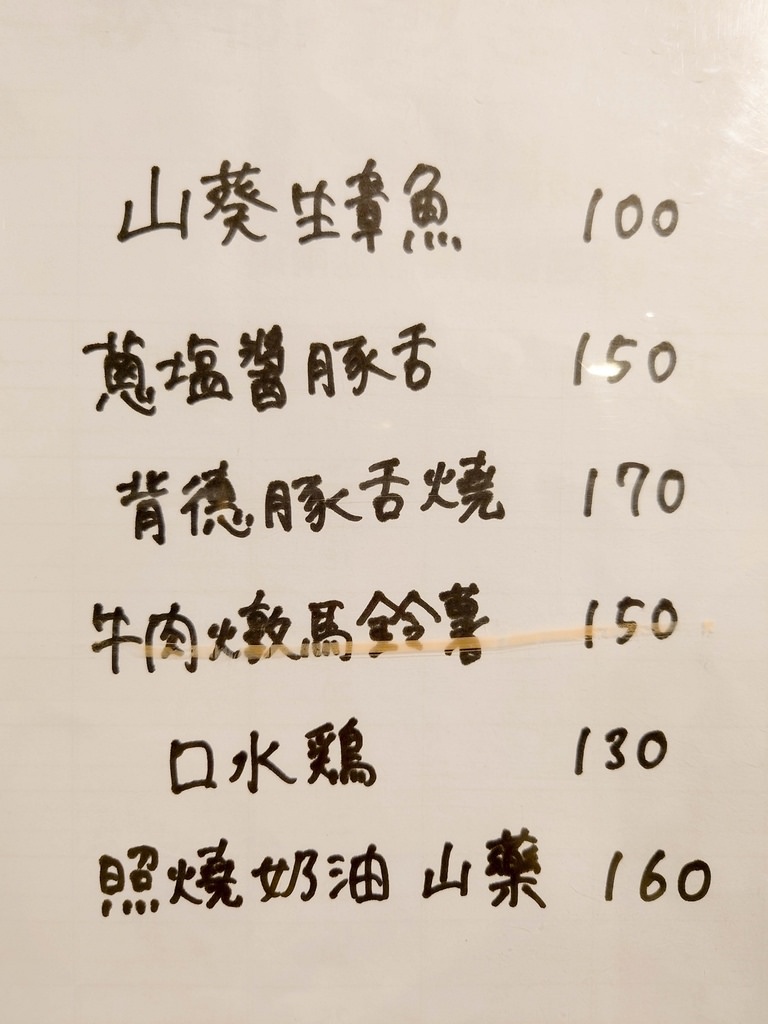 山葵生章魚 100
蔥塩醬豚舌 150
背德豚舌燒 170
牛肉燉馬鈴薯 150
口水鶏 130
照燒奶油 山藥 160